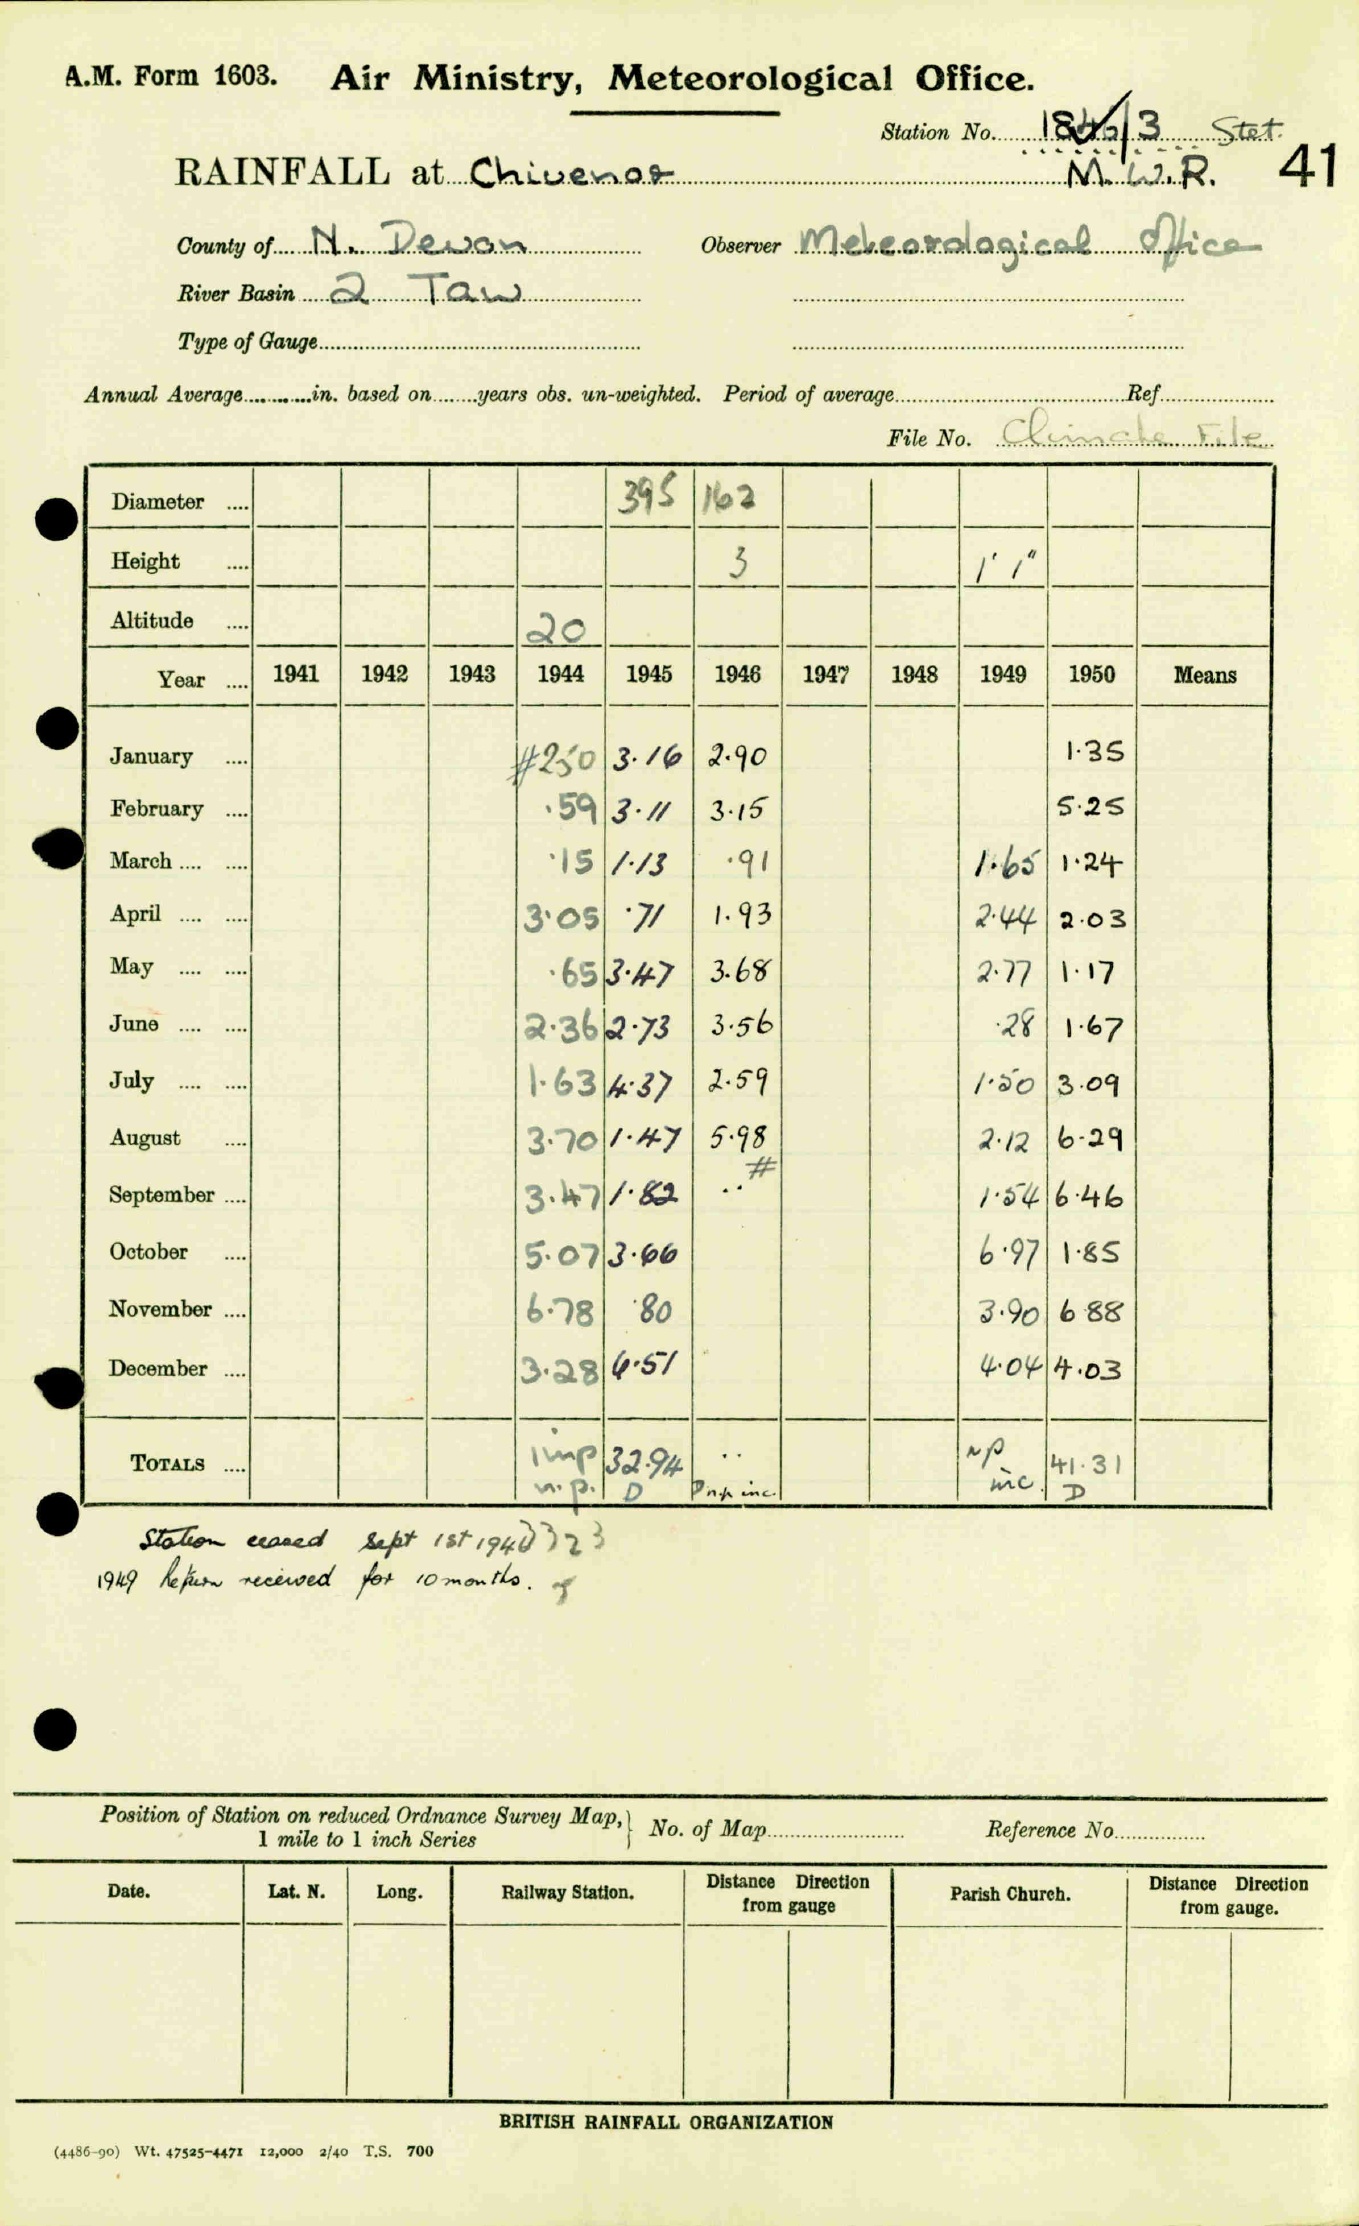 A.M. Form 1603. Air Ministry, Meteorological Office.
Station No. 1846/3 Stet.
RAINFALL at Chivenor M.W.R. 41
County of N. Devon Observer Meteorological Office
River Basin 2 Taw
Type of Gauge
Annual Average in. based on years obs. un-weighted. Period of average Ref
File No. Climate File
Diameter .... 395 162
Height .... 3 1' 1"
Altitude .... 20
Year .... 1941 1942 1943 1944 1945 1946 1947 1948 1949 1950 Means
January .... #250 3.16 2.90 1.35
February .... .59 3.11 3.15 5.25
March .... .... .15 1.13 .91 1.65 1.24
April .... .... 3.05 .71 1.93 2.44 2.03
May .... .... .65 3.47 3.68 2.77 1.17
June .... .... 2.36 2.73 3.56 .28 1.67
July .... .... 1.63 4.37 2.59 1.50 3.09
August .... 3.70 1.47 5.98 2.12 6.29
September .... 3.47 1.82 .. # 1.54 6.46
October .... 5.07 3.66 6.97 1.85
November .... 6.78 .80 3.90 6.88
December .... 3.28 6.51 4.04 4.03
TOTALS .... imp 32.94 .. np 41.31
n.p. D D n.p. inc. inc. D
Station ceased Sept 1st 1946
1949 Return received for 10 months.
Position of Station on reduced Ordnance Survey Map, } No. of Map Reference No.
1 mile to 1 inch Series
Date. Lat. N. Long. Railway Station. Distance Direction from gauge Parish Church. Distance Direction from gauge.
BRITISH RAINFALL ORGANIZATION
(4486-90) Wt. 47525-4471 12,000 2/40 T.S. 700